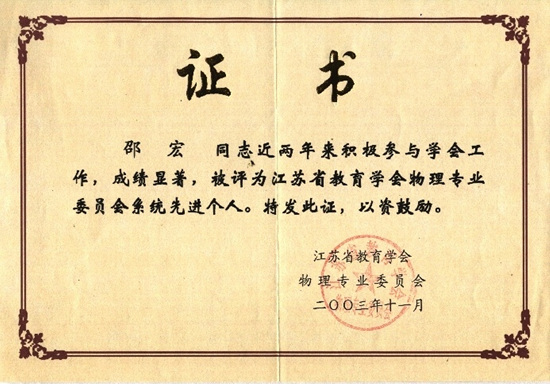 证 书
邵 宏 同志近两年来积极参与学会工
作，成绩显著，被评为江苏省教育学会物理专业
委员会系统先进个人。特发此证，以资鼓励。
江苏省教育学会
物理专业委员会
二〇〇三年十一月